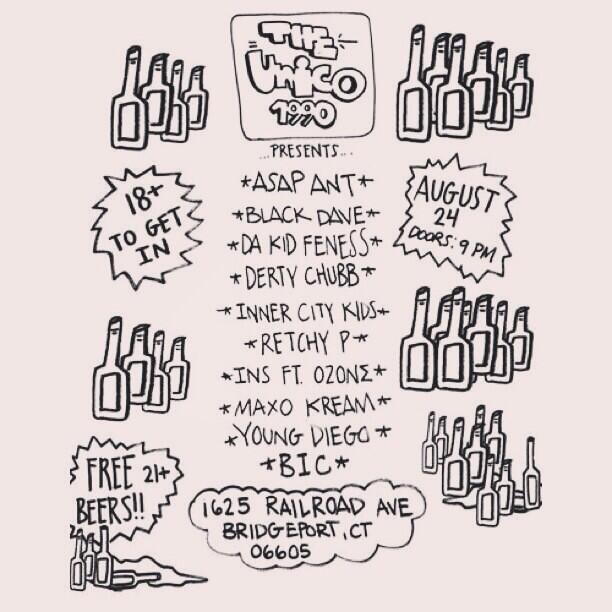 THE
UNICO
1990
...PRESENTS...
*ASAP ANT*
*BLACK DAVE*
*DA KID FENESS*
*DERTY CHUBB*
*INNER CITY KIDS*
*RETCHY P*
*INS FT. OZONΣ*
*MAXO KREAM*
*YOUNG DIEGO*
*BIC*
18+
TO GET
IN
AUGUST
24
DOORS: 9 PM
FREE 21+
BEERS!!
1625 RAILROAD AVE
BRIDGEPORT, CT
06605